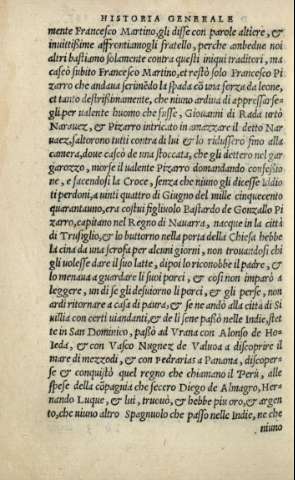 HISTORIA GENERALE
mente Francesco Martino, gli disse con parole altiere, &
inuittißime affrontiamogli fratello, perche anbedue noi
altri bastiamo solamente contra questi iniqui traditori, ma
cascò subito Francesco Martino, et restò solo Francesco Pi
zarro che andaua scrimēdo la spada cō una forza da leone,
et tanto destrißimamente, che niuno ardiua di appressarse-
gli per ualente huomo che fusse, Giouanni di Rada urtò
Naruaez, & Pizarro intricato in amazzare il detto Nar
uaez, saltorono tutti contra di lui & lo ridussero fino alla
camera, doue cascò de una stoccata, che gli dettero nel gar
garozzo, morse il ualente Pizarro domandando confeßio
ne, e facendosi la Croce, senza che niuno gli dicesse Iddio
ti perdoni, a uinti quattro di Giugno del mille cinquecento
quarantauno, era costui figliuolo Bastardo de Gonzallo Pi
zarro, capitano nel Regno di Nauarra, nacque in la città
di Trusiglio, & lo buttorno nella porta della Chiesa hebbe
la cina da una scrofa per alcuni giorni, non trouandosi chi
gli uolesse dare il suo latte, dipoi lo riconobbe il padre, &
lo menaua a guardare li suoi porci, & cosi non imparò a
leggere, un dì se gli desuiorno li porci, & gli perse, non
ardì ritornare a casa di paura, & se ne andò alla città di Si
uillia con certi uiandanti, & de lì sene paßò nelle Indie, stet
te in San Dominico, paßò ad Vrana con Alonso de Ho-
ieda, & con Vasco Nugnez de Valuoa a discoprire il
mare di mezzodì, & con Pedrarias a Panama, discoper-
se & conquistò quel regno che chiamano il Perù, alle
spese della cōpagnia che fecero Diego de Almagro, Her-
nando Luque, & lui, trouò, & hebbe più oro, & argen
to, che niuno altro Spagnuolo che paßò nelle Indie, ne che
niuno